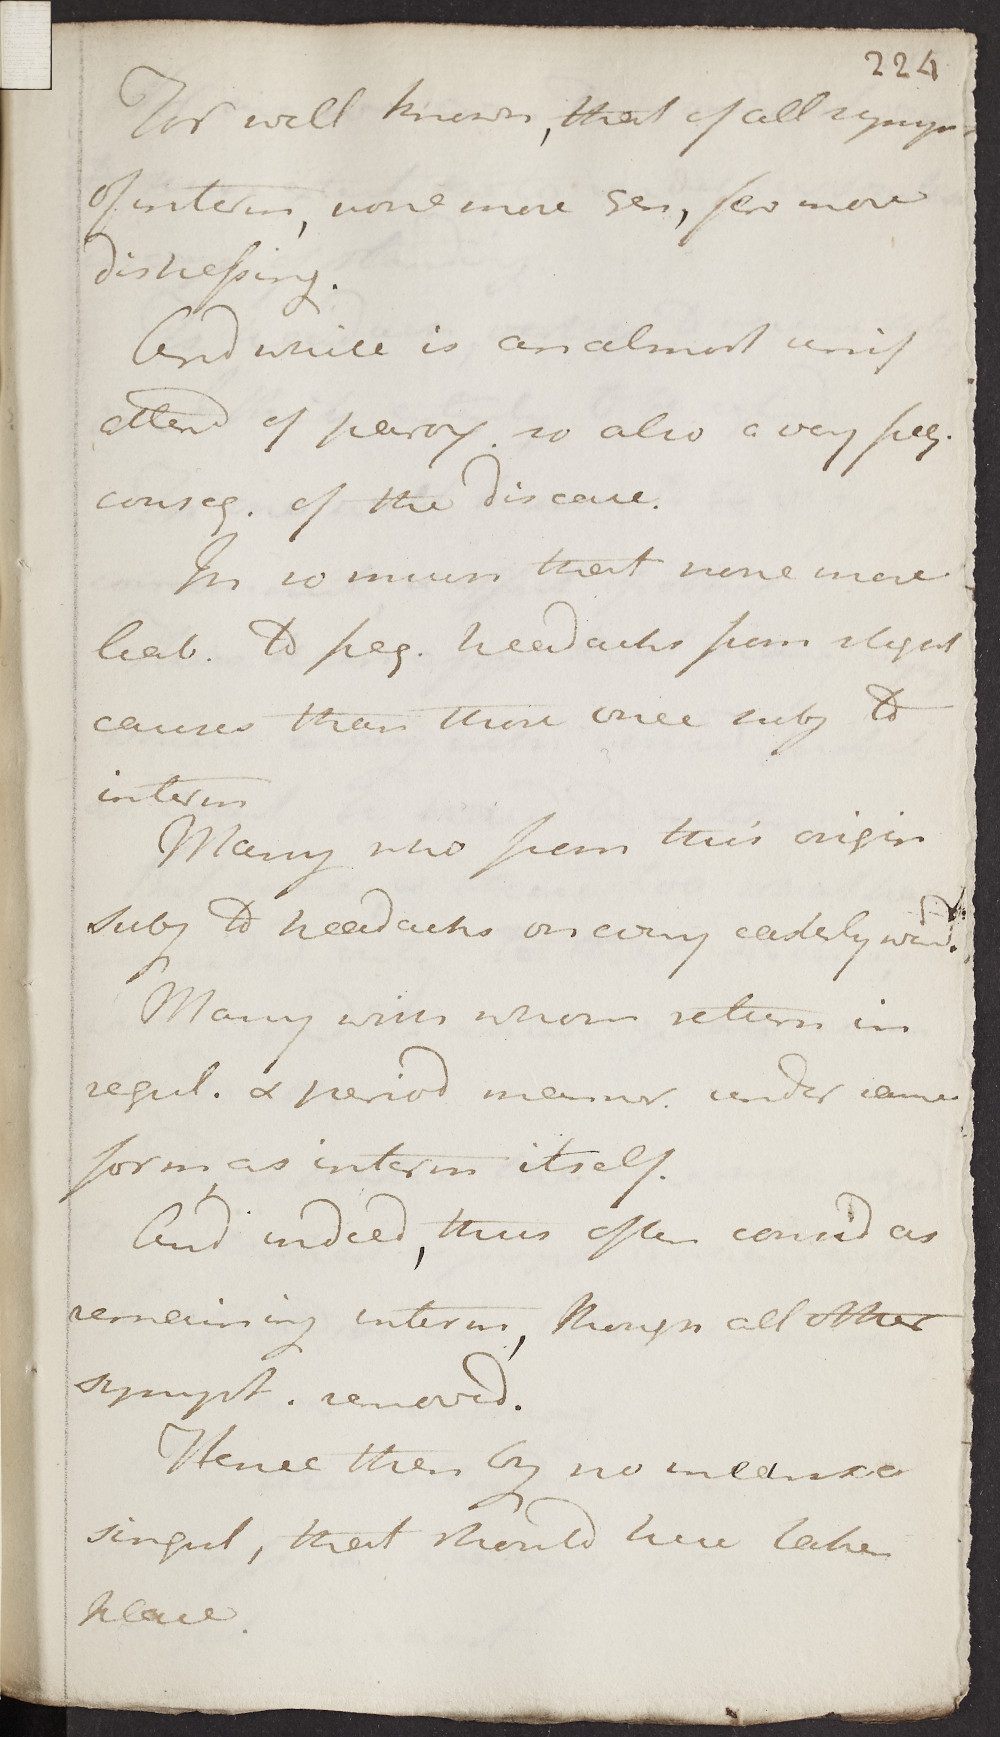 224
For well known, that of all symp
of interm, none more gen, few more
distressing.
And while is an almost unif
attend of parox. so also a very freq.
conseq. of the disease.
In so much that none more
liab. to freq. headachs from slight
causes than those once subj to
interm
Many who from this origin
subj to headachs on every easterly wind.
Many with whom return in
regul. & period manner. under same
form, as interm itself.
And indeed, thus often consid as
remaining interm, though all other
sympt. removed.
Hence then by no means a
singul, that should here take
place.